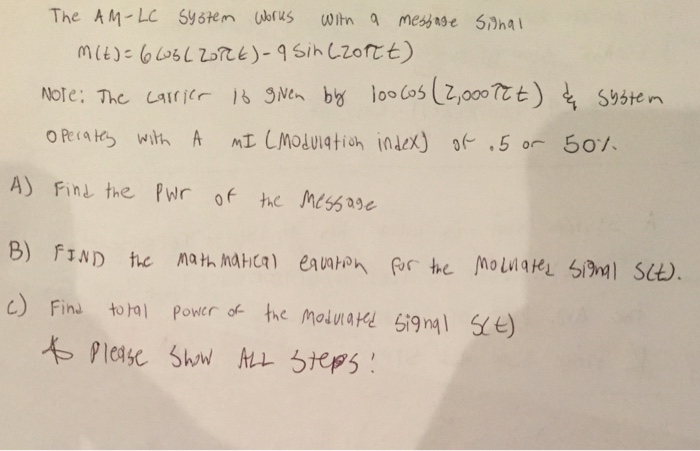 The AM-LC System Works With a message Signal
m(t) = 6 cos(20πt) - 9 sin(20πt)
Note: The Carrier is given by 100 cos(2,000πt) & System
Operates with A mI (Modulation index) of .5 or 50%.
A) Find the Pwr of the Message
B) FIND the mathmatical equation for the Modulated Signal S(t).
C) Find total power of the modulated signal S(t)
Please Show ALL Steps!